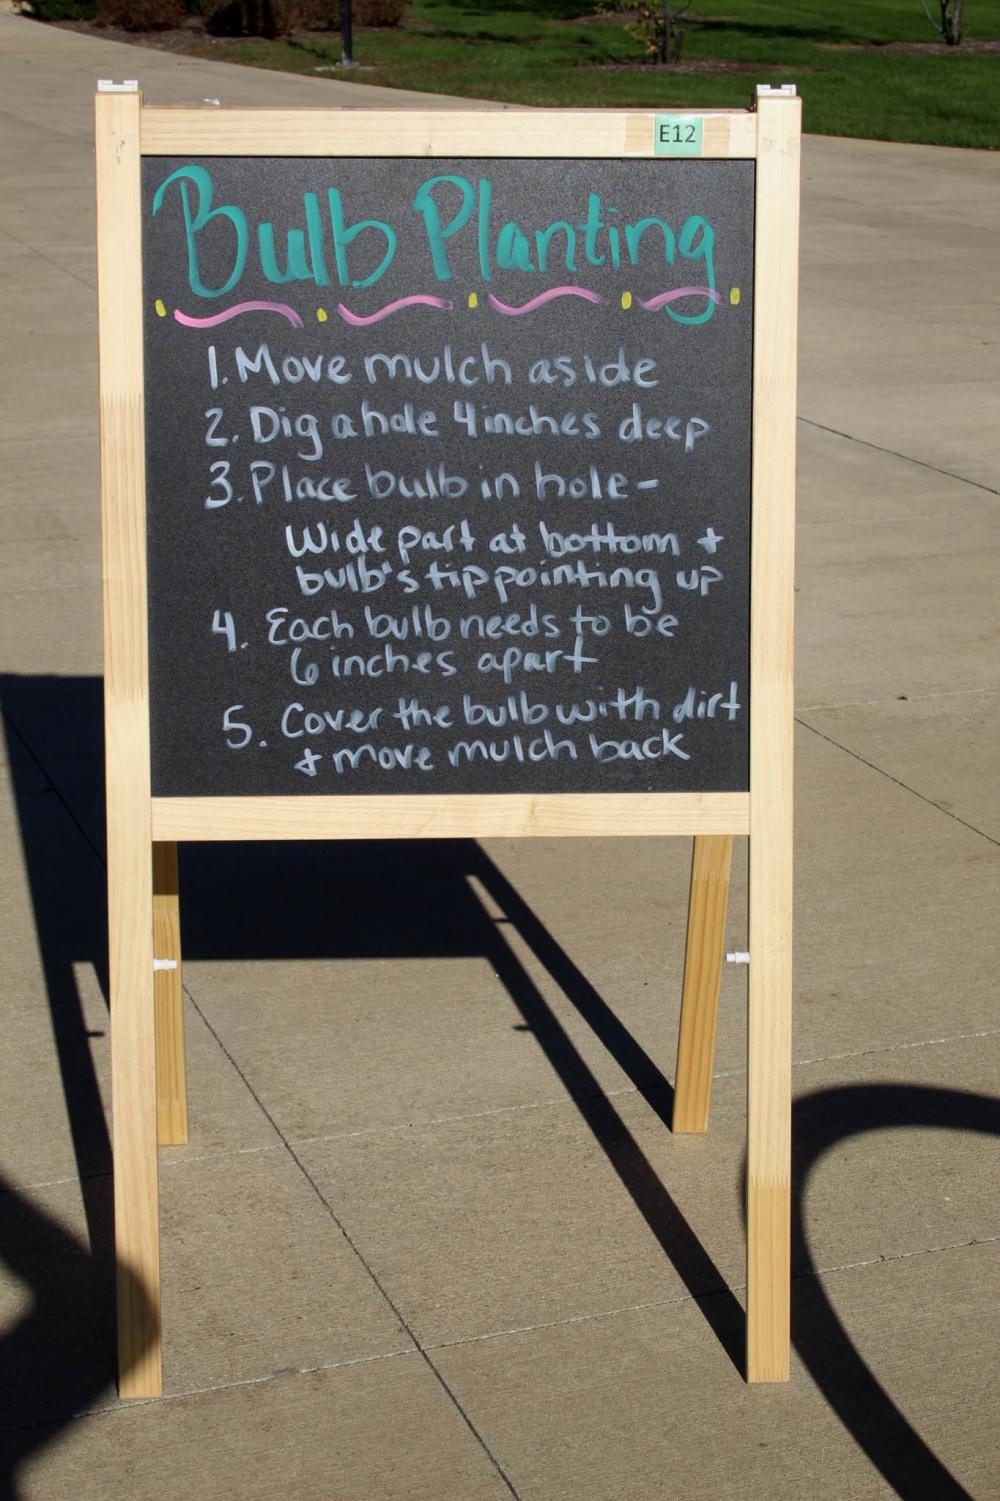 E12
Bulb Planting
1. Move mulch aside
2. Dig a hole 4 inches deep
3. Place bulb in hole -
Wide part at bottom +
bulb's tip pointing up
4. Each bulb needs to be
6 inches apart
5. Cover the bulb with dirt
+ move mulch back